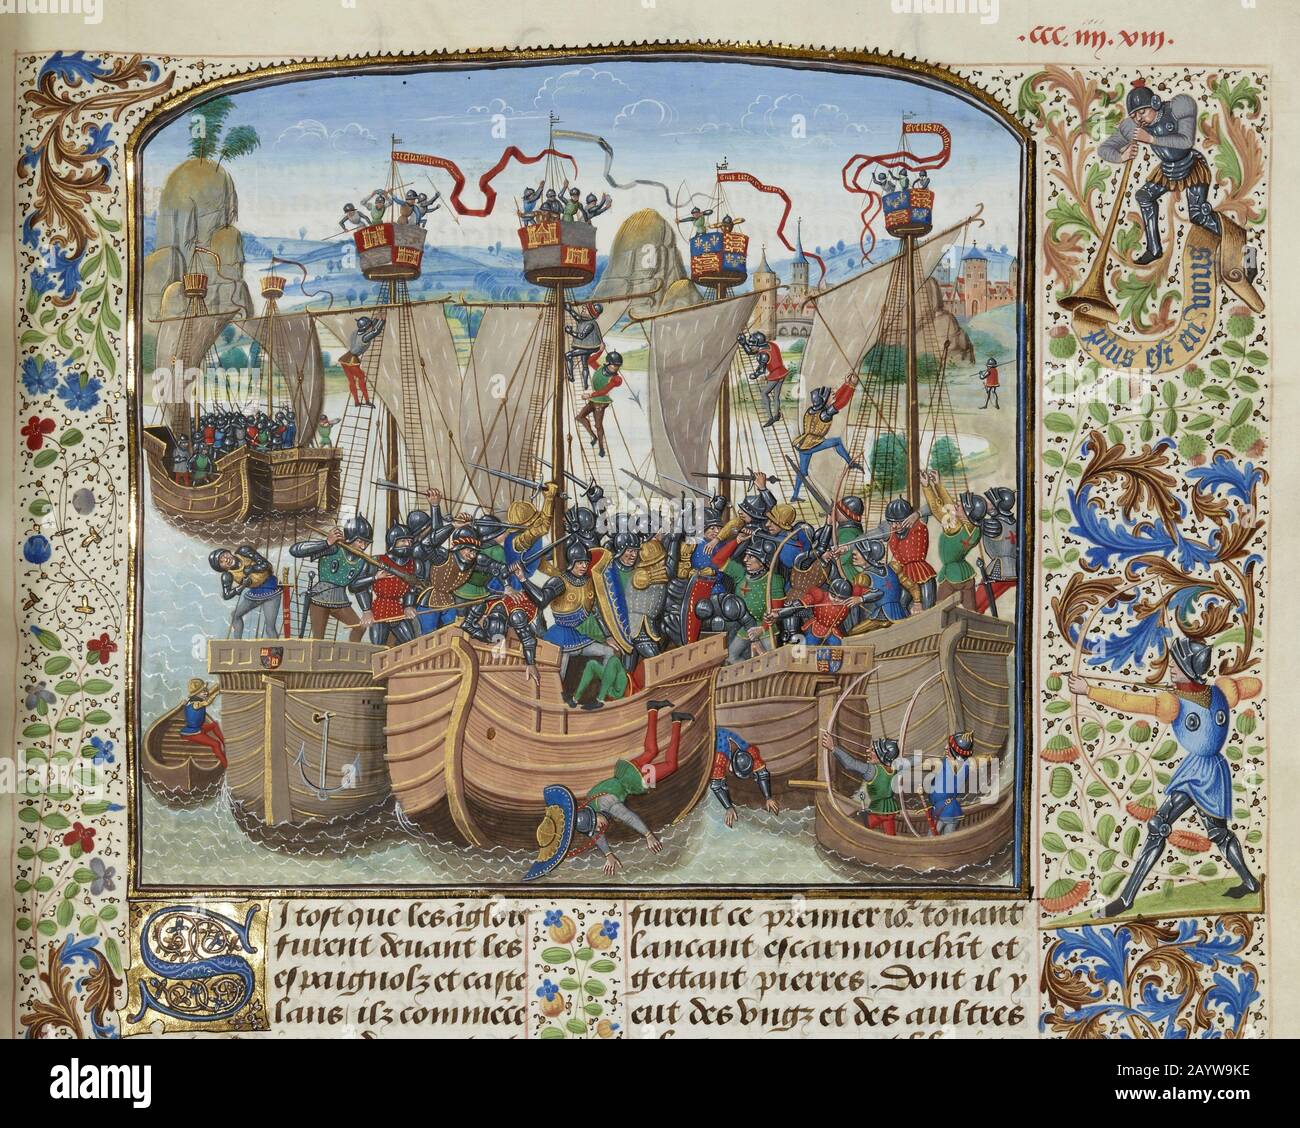 .CCC. iiij. xiij.
plus est en vous
S I tost que les ãglois
furent deuant les
espaignolz et caste
lans ilz commẽce
furent ce premier iõr. tonant
lancant escarmouchãt et
gettant pierres. Dont il y
eut des vngz et des aultres
alamy
Image ID: 2AYW9KE
www.alamy.com